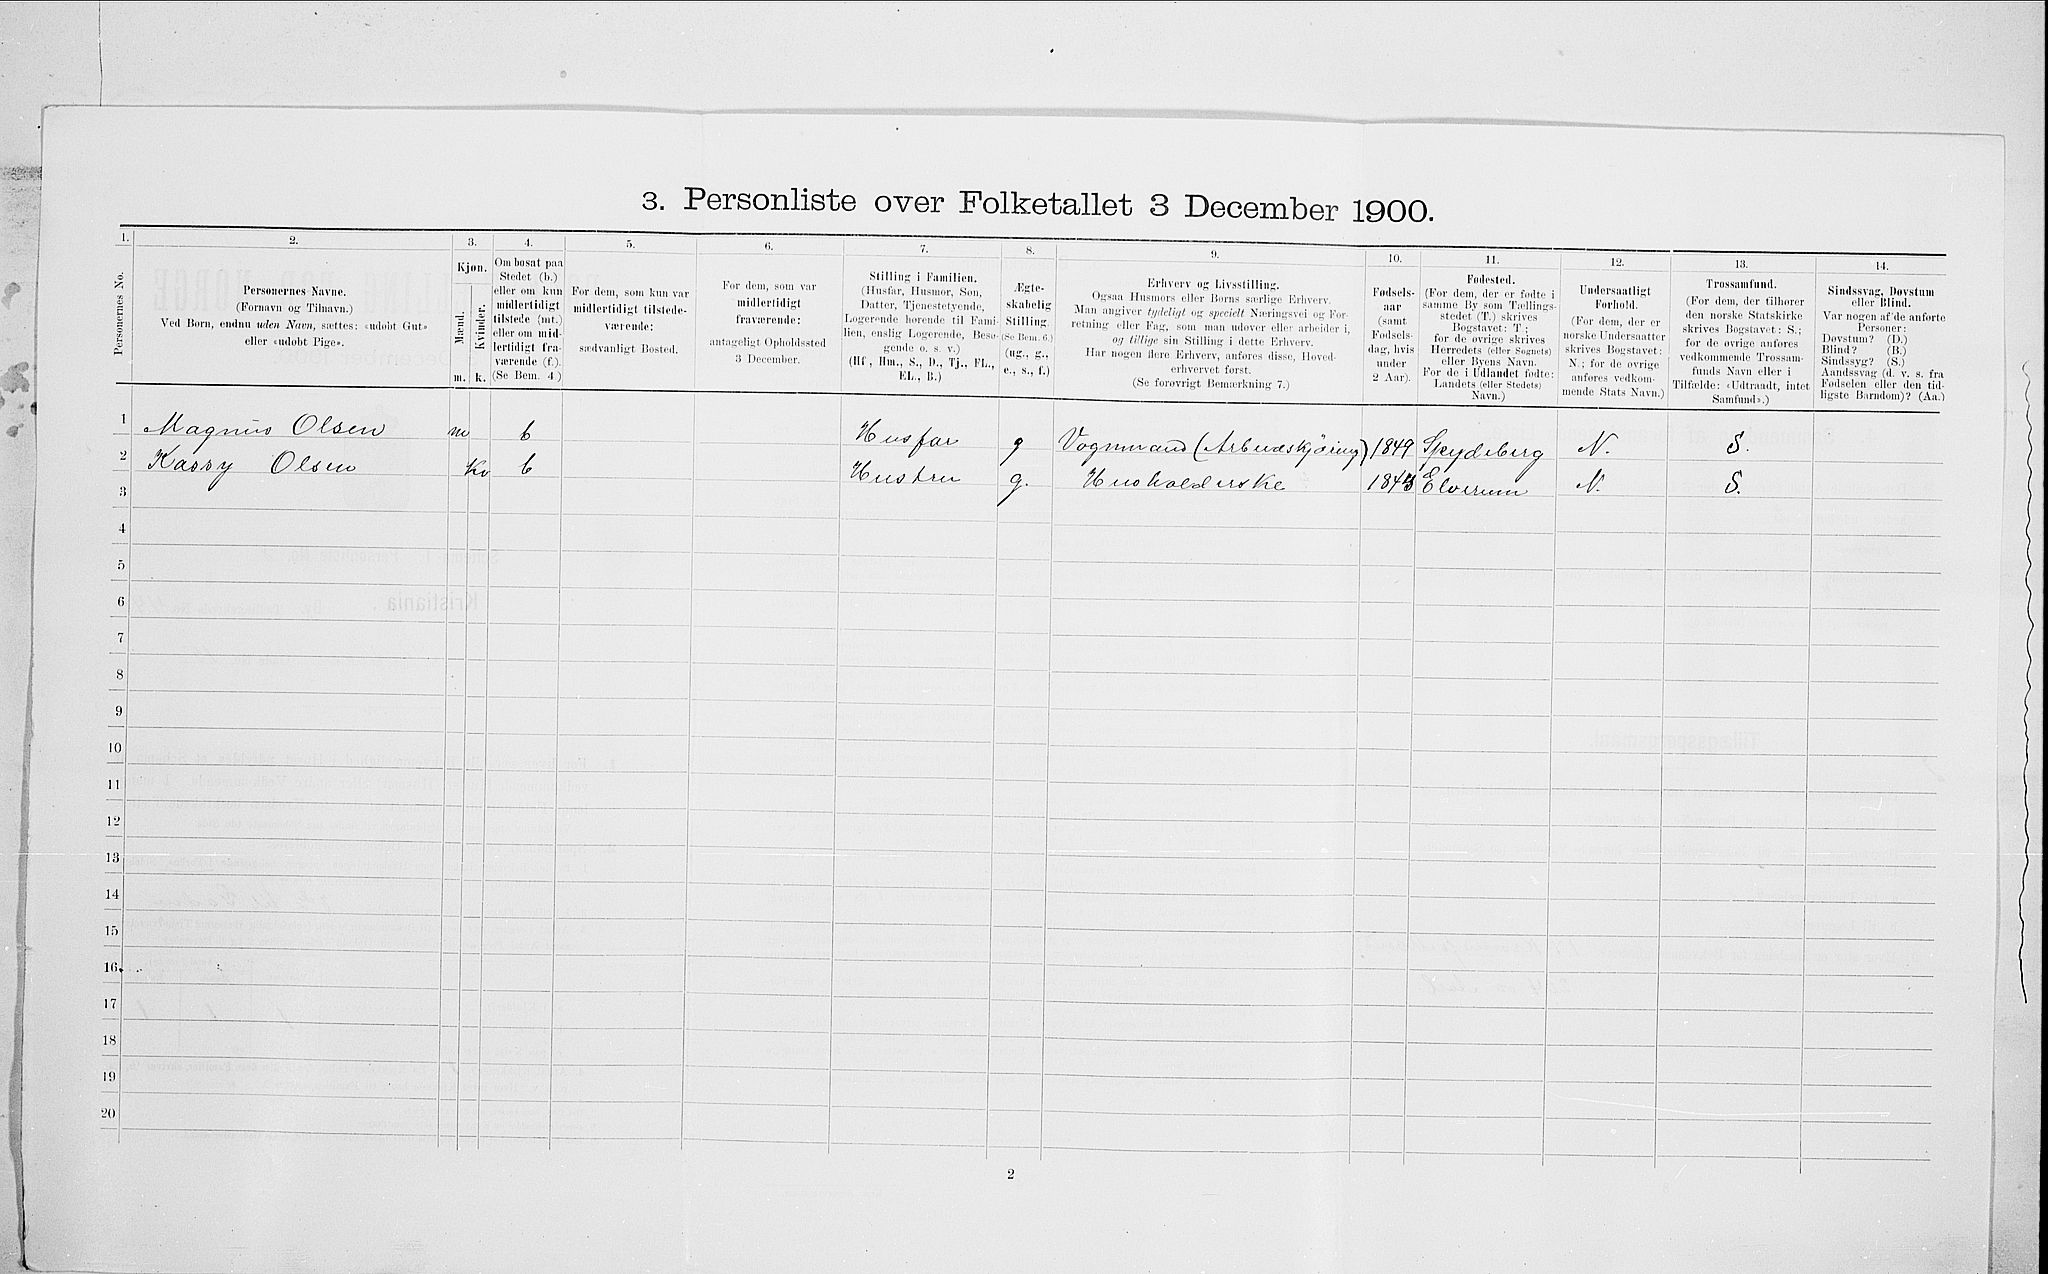 3. Personliste over Folketallet 3 December 1900.
1. 2. 3. 4. 5. 6. 7. 8. 9. 10. 11. 12. 13. 14.
Personernes No.
Personernes Navne.
(Fornavn og Tilnavn.)
Ved Børn, endnu uden Navn, sættes: «udøbt Gut»
eller «udøbt Pige».
Kjøn.
Mænd.
Kvinder.
m. k.
Om bosat paa
Stedet (b.)
eller om kun
midlertidigt
tilstede (mt.)
eller om mid-
lertidigt fra-
værende (f.).
(Se Bem. 4.)
For dem, som kun var
midlertidigt tilstede-
værende:
sædvanligt Bosted.
For dem, som var
midlertidigt
fraværende:
antageligt Opholdssted
3 December.
Stilling i Familien.
(Husfar, Husmor, Søn,
Datter, Tjenestetyende,
Logerende hørende til Fami-
lien, enslig Logerende, Besø-
gende o. s. v.)
(Hf., Hm., S., D., Tj., FL.,
EL., B.)
Ægte-
skabelig
Stilling.
(Se Bem. 6.)
(ug., g.,
e., s., f.)
Erhverv og Livsstilling.
Ogsaa Husmors eller Børns særlige Erhverv.
Man angiver tydeligt og specielt Næringsvei og For-
retning eller Fag, som man udøver eller arbeider i,
og tillige sin Stilling i dette Erhverv.
Har nogen flere Erhverv, anføres disse, Hoved-
erhvervet først.
(Se forøvrigt Bemærkning 7.)
Fødsels-
aar
(samt
Fødsels-
dag, hvis
under
2 Aar).
Fødested.
(For dem, der er fødte i
samme By som Tællings-
stedet (T.) skrives
Bogstavet: T.;
for de øvrige skrives
Herredets (eller Sognets)
eller Byens Navn.
For de i Udlandet fødte:
Landets (eller Stedets)
Navn.)
Undersaatligt
Forhold.
(For dem, der er
norske Undersaatter
skrives Bogstavet:
N.; for de øvrige
anføres vedkom-
mende Stats Navn.)
Trossamfund.
(For dem, der tilhører
den norske Statskirke
skrives Bogstavet: S.;
for de øvrige anføres
vedkommende Trossam-
funds Navn eller i
Tilfælde: «Udtraadt, intet
Samfund».)
Sindssvag, Døvstum
eller Blind.
Var nogen af de anførte
Personer:
Døvstum? (D.)
Blind? (B.)
Sindssyg? (S.)
Aandssvag (d. v. s. fra
Fødselen eller den tid-
ligste Barndom)? (Aa.)
1 Magnus Olsen m b Husfar g Vognmand (Arbeidskjøring) 1849 Spydeberg N. S.
2 Kassy Olsen Kv b Hustru g. Husholderske Elverum N. S.
3
4
5
6
7
8
9
10
11
12
13
14
15
16
17
18
19
20
2